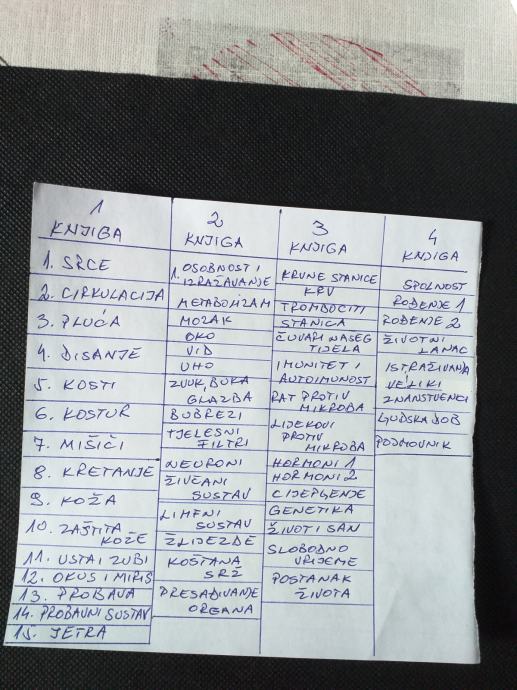 1
KNJIGA
1. SRCE
2. CIRKULACIJA
3. PLUĆA
4. DISANJE
5. KOSTI
6. KOSTUR
7. MIŠIĆI
8. KRETANJE
9. KOŽA
10. ZAŠTITA
KOŽE
11. USTA I ZUBI
12. OKUS I MIRIS
13. PROBAVA
14. PROBAVNI SUSTAV
15. JETRA
2
KNJIGA
1. OSOBNOST I
IZRAŽAVANJE
METABOLIZAM
MOZAK
OKO
VID
UHO
ZVUK, BUKA
GLAZBA
BUBREZI
TJELESNI
FILTRI
NEURONI
ŽIVČANI
SUSTAV
LIMFNI
SUSTAV
ŽLIJEZDE
KOŠTANA
SRŽ
PRESAĐIVANJE
ORGANA
3
KNJIGA
KRVNE STANICE
KRV
TROMBOCITI
STANICA
ČUVARI NAŠEG
TIJELA
IMUNITET I
AUTOIMUNOST
RAT PROTIV
MIKROBA
LIJEKOVI
PROTIV
MIKROBA
HORMONI 1
HORMONI 2
CIJEPLJENJE
GENETIKA
ŽIVOT I SAN
SLOBODNO
VRIJEME
POSTANAK
ŽIVOTA
4
KNJIGA
SPOLNOST
ROĐENJE 1
ROĐENJE 2
ŽIVOTNI
LANAC
ISTRAŽIVANJA
VELIKI
ZNANSTVENCI
LJUDSKA DOB
POJMOVNIK